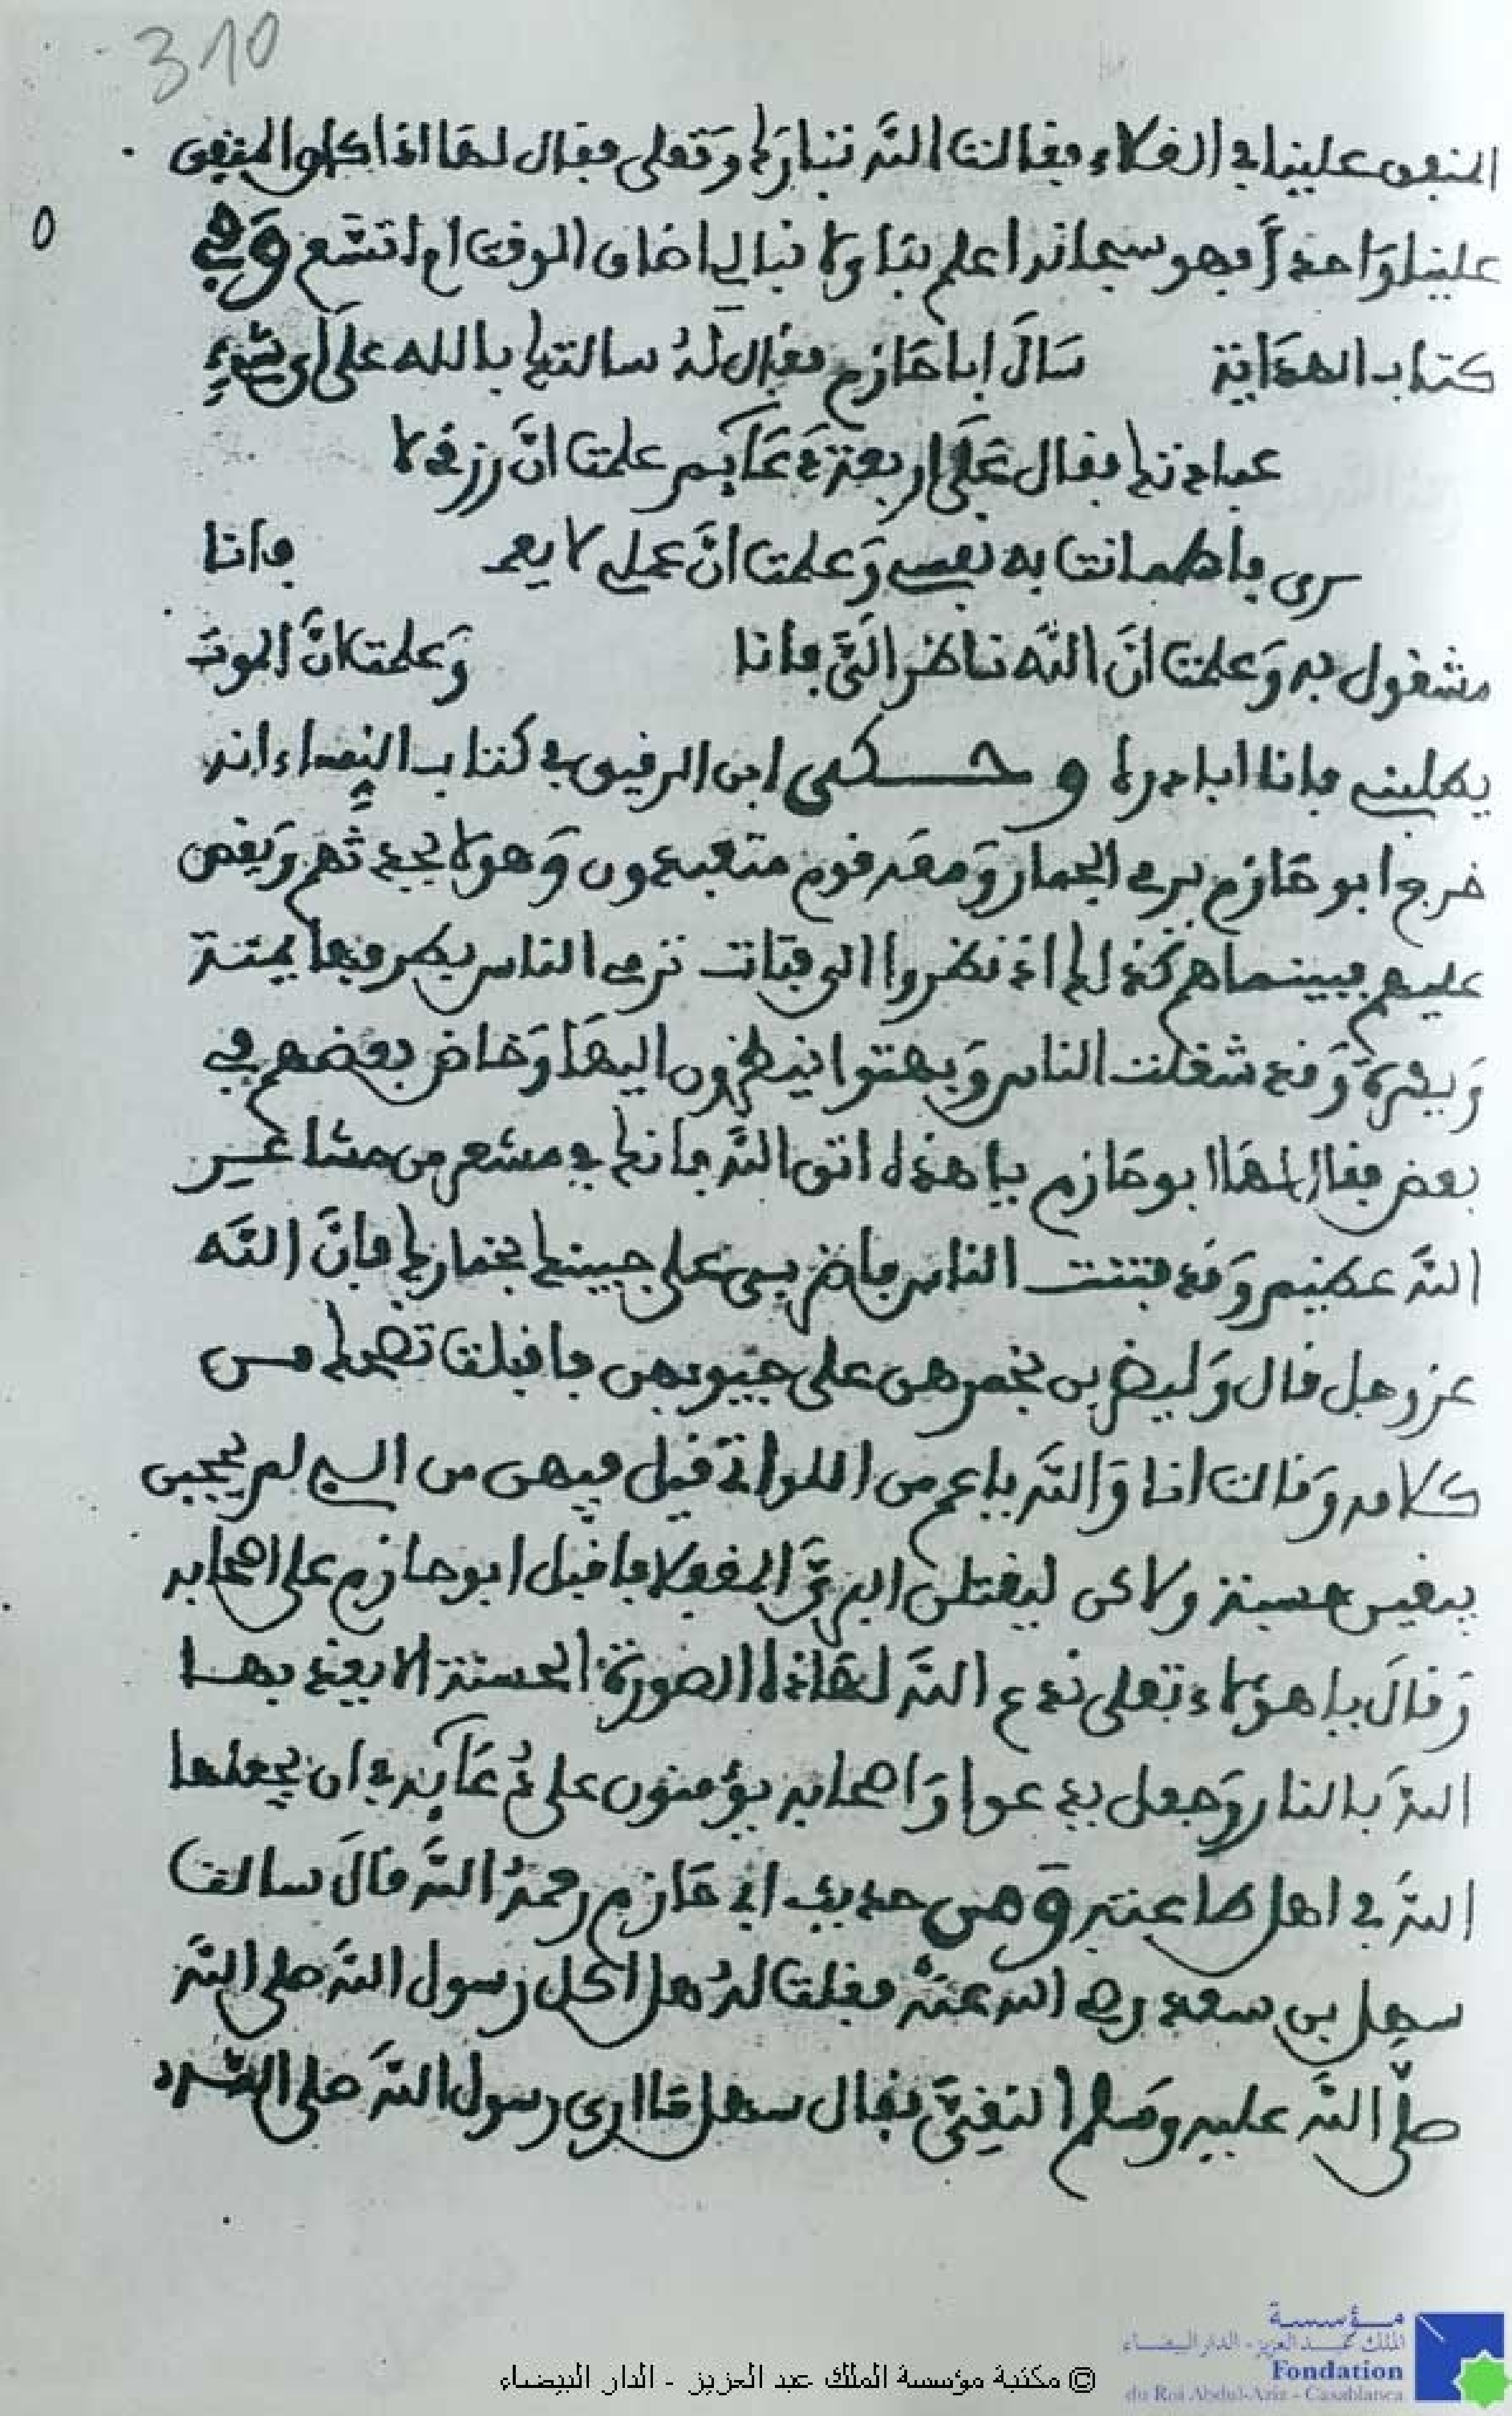 310
المنفق علينا في الغلاء فقالت الله تبارك وتعلى فقال لها اذا كان المنفق
علينا واحدا فهو سبحانه اعلم بنا ولا نبالي اضاق الوقت ام اتسع وفي
كتاب الهداية سال ابا حازم فقال له سالتك بالله على اي شيء
عبادتك فقال على اربعة دعايم علمت ان رزقي لا
فاطمانت به نفسي وعلمت ان عملي لا يعم فانا
مشغول به وعلمت ان الله ناظر الي فانا وعلمت ان الموت
يطلبني فانا ابادره وحكى ابن الرفيق في كتاب النساء انه
خرج ابو حازم يرمي الجمار ومعه قوم متعبدون وهو لا يحدثهم ويقص
عليهم فبينما هم كذلك اذ نظروا الى فتات ترمي الناس بطرفها يمنة
ويسرة وقد شغلت الناس وبهتوا ينظرون اليها وخاض بعضهم في
بعض فقال لها ابو حازم يا هذه اتق الله فانك في مشعر من مشاعر
الله عظيم وقد فتنت الناس فاضربي على جيبك بخمارك فان الله
عز وجل قال وليضربن بخمرهن على جيوبهن فاقبلت تضحك من
كلامه وقالت انا والله يا عم من اللواتي قيل فيهن من الـ لم يحججن
يبغين حسبة ولاكن ليقتلن البري المغفلا فاقبل ابو حازم على اصحابه
وقال يا هؤلاء تعلى ندع الله لهاذه الصورة الحسنة الا يعذبها
الله بالنار وجعل يدعوا واصحابه يؤمنون على دعايه في ان يجعلها
الله في اهل طاعته ومن حديث ابي حازم رحمه الله قال سالت
سهل بن سعد رضي الله عنه فقلت له هل اكل رسول الله صلى الله
صلى الله عليه وسلم النقي فقال سهل ما ارى رسول الله صلى الله
© مكتبة مؤسسة الملك عبد العزيز - الدار البيضاء
مؤسسة
الملك عبد العزيز - الدار البيضاء
Fondation
du Roi Abdul-Aziz - Casablanca